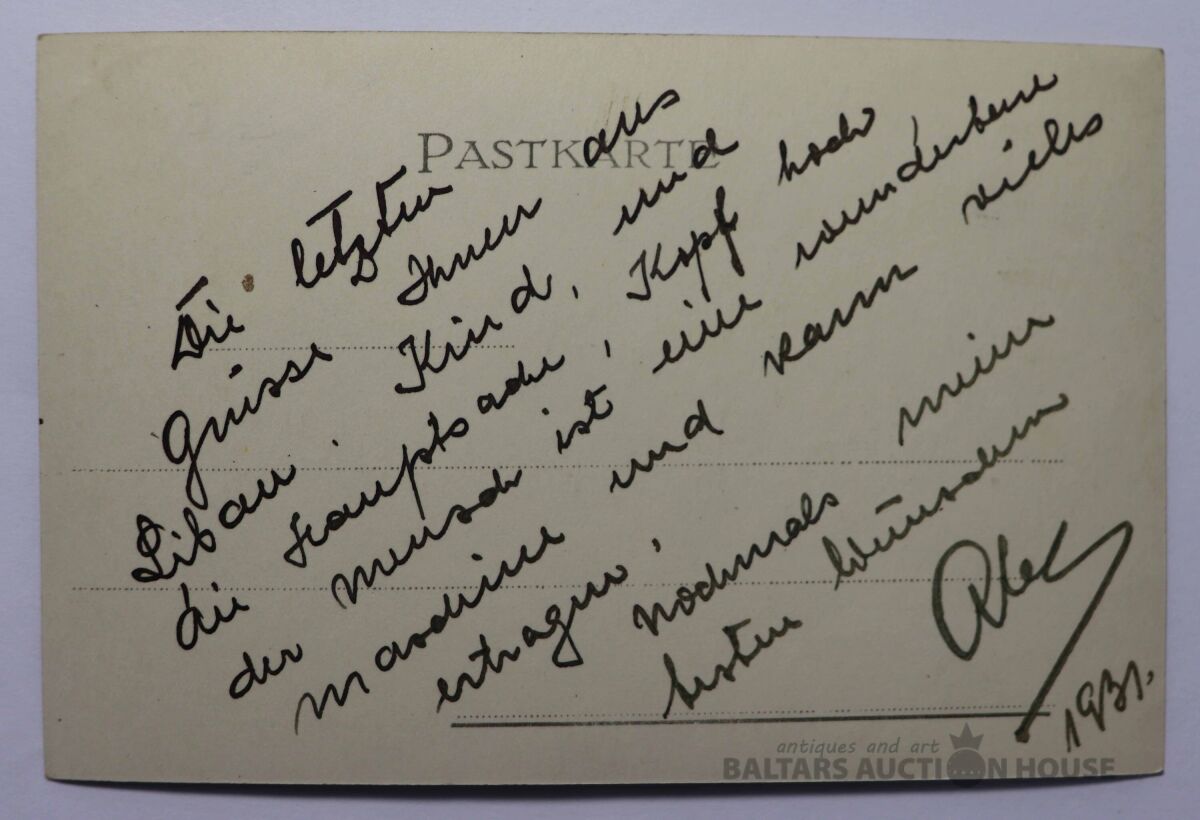 PASTKARTE
Die letzten
Grüsse Ihnen aus
Libau. Kind, und
die Hauptsache, Kopf hoch,
der Mensch ist eine wunderbare
Maschine und kann vieles
ertragen, nochmals meine
besten Wünschen
Alex
1931.
antiques and art
BALTARS AUCTION HOUSE